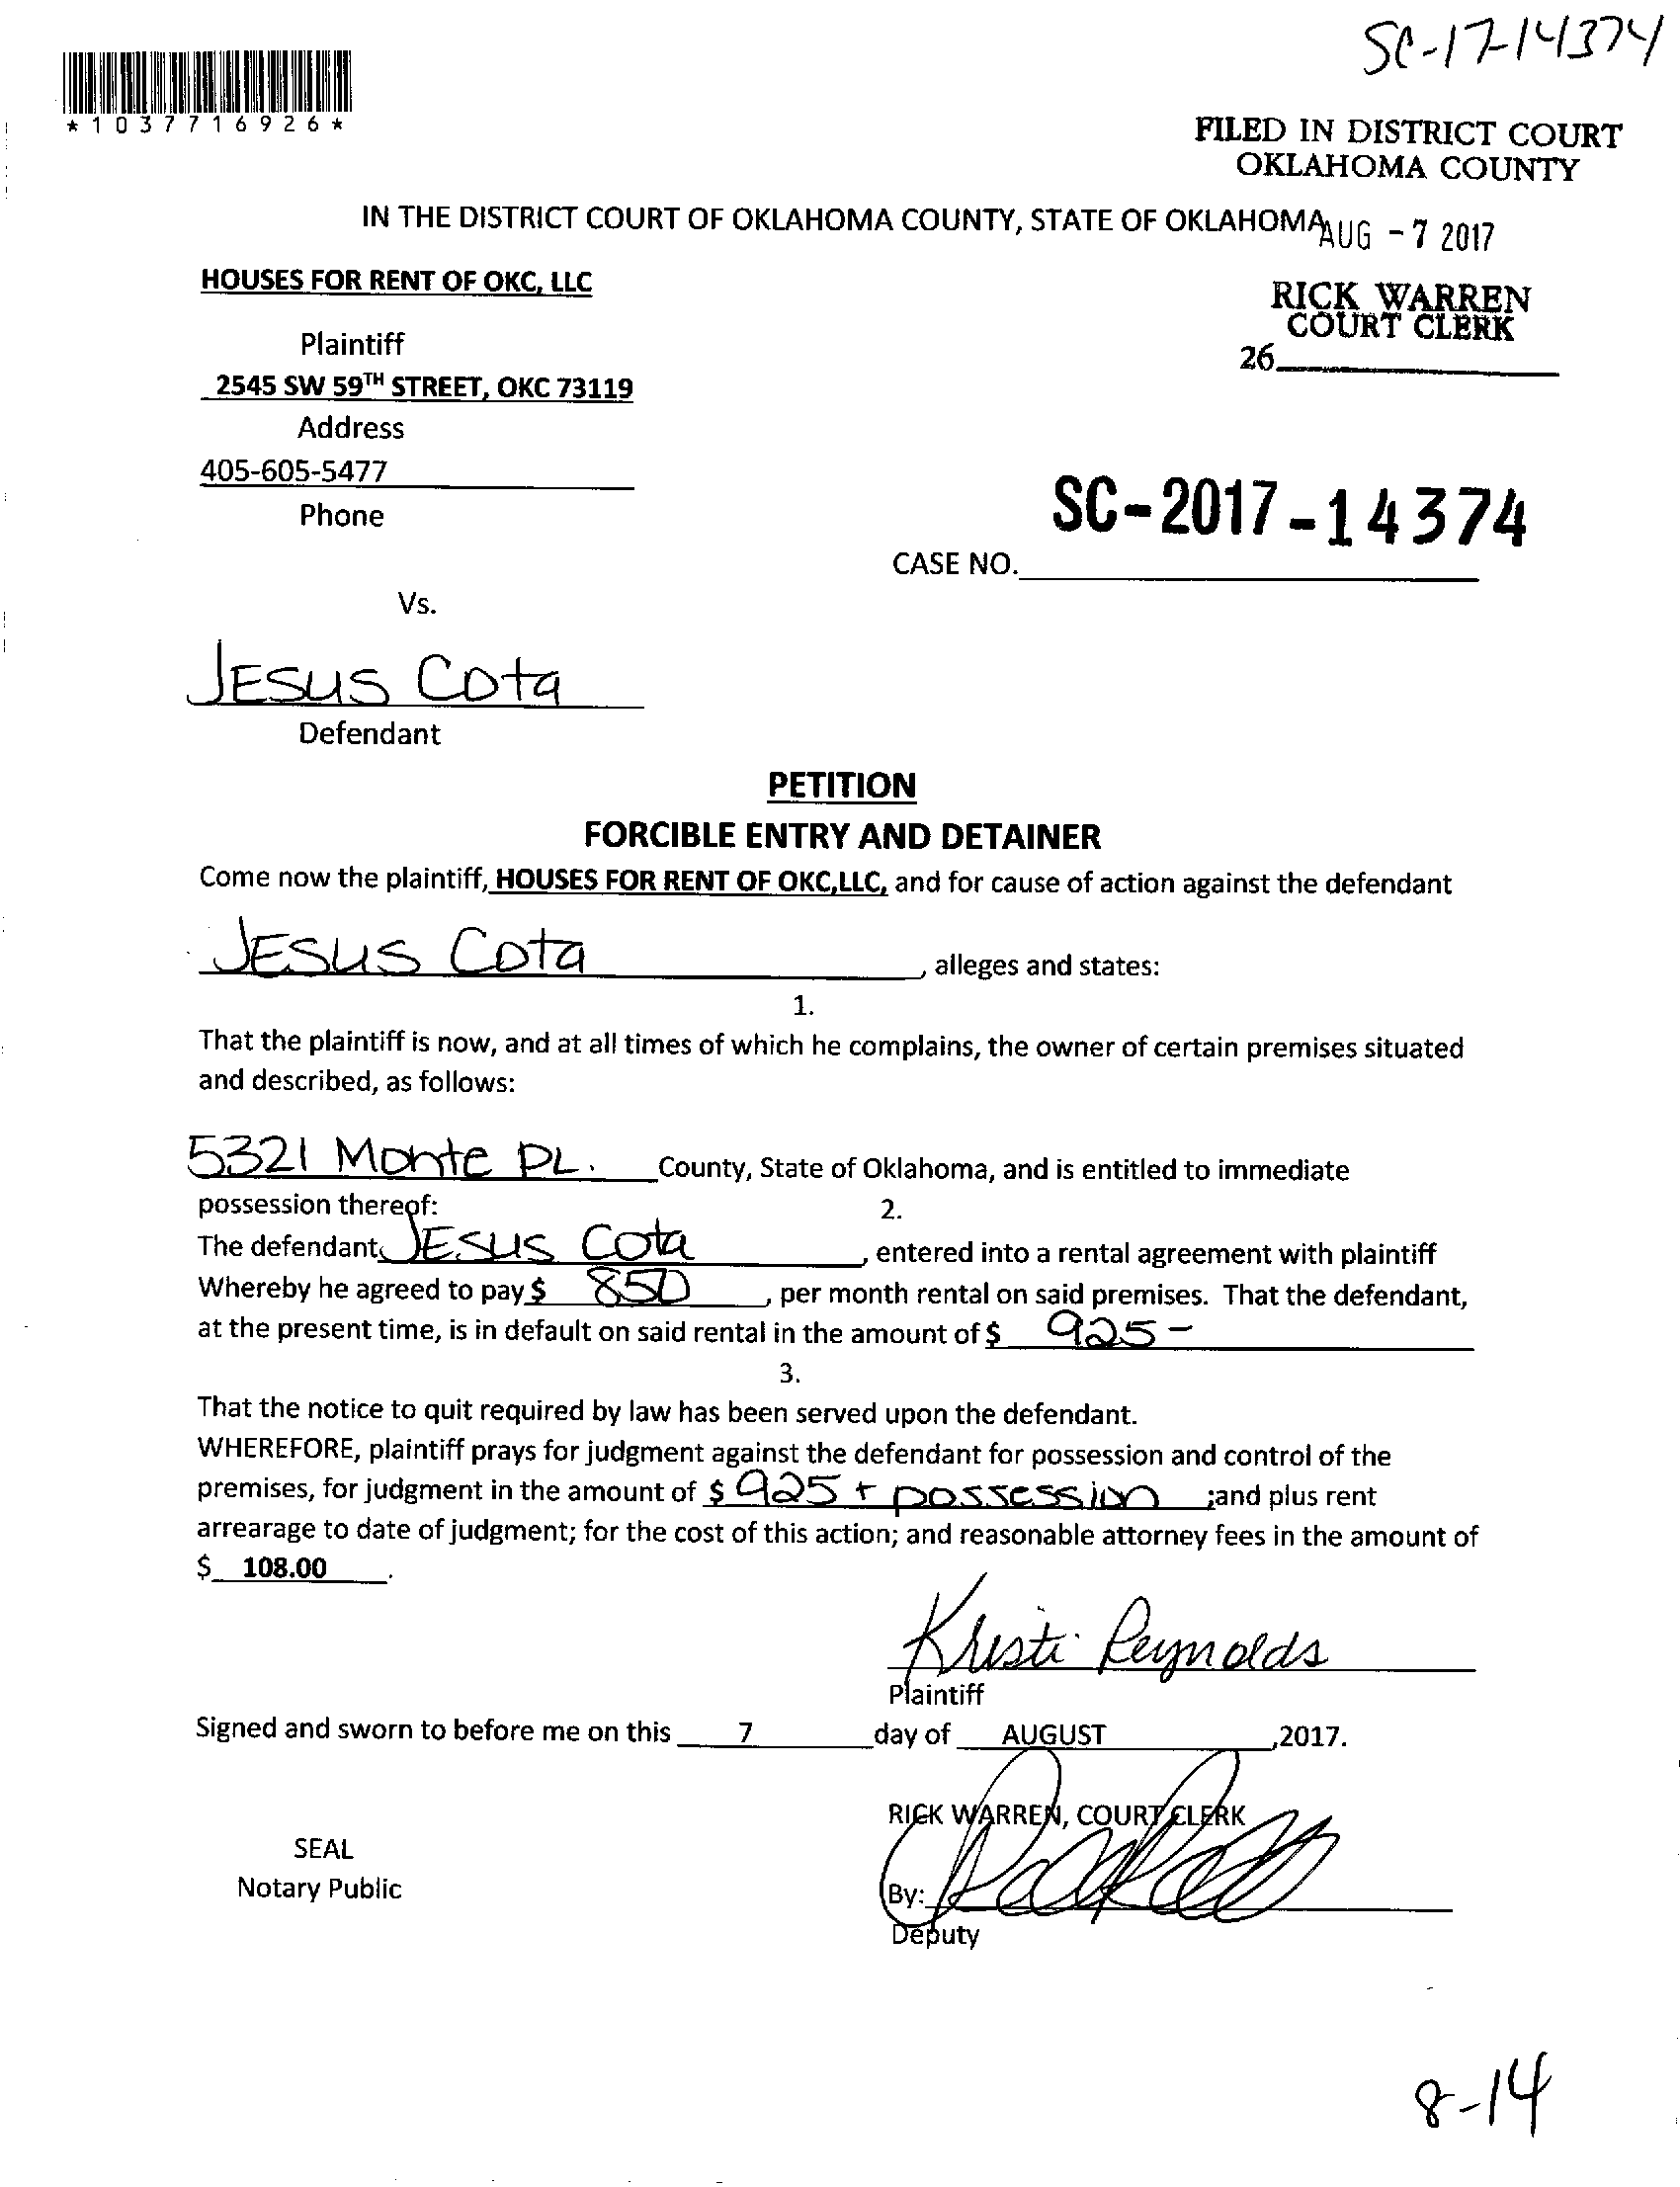 SC-17-14374
*1037716926*
FILED IN DISTRICT COURT
OKLAHOMA COUNTY
IN THE DISTRICT COURT OF OKLAHOMA COUNTY, STATE OF OKLAHOMA
AUG - 7 2017
HOUSES FOR RENT OF OKC, LLC
RICK WARREN
COURT CLERK
Plaintiff
26
2545 SW 59TH STREET, OKC 73119
Address
405-605-5477
Phone
SC-2017-14374
CASE NO.
Vs.
JESUS Cota
Defendant
PETITION
FORCIBLE ENTRY AND DETAINER
Come now the plaintiff, HOUSES FOR RENT OF OKC,LLC, and for cause of action against the defendant
JESUS Cota, alleges and states:
1.
That the plaintiff is now, and at all times of which he complains, the owner of certain premises situated
and described, as follows:
5321 Monte PL. County, State of Oklahoma, and is entitled to immediate
possession thereof:
2.
The defendant, JESUS Cota, entered into a rental agreement with plaintiff
Whereby he agreed to pay $ 850, per month rental on said premises. That the defendant,
at the present time, is in default on said rental in the amount of $ 925-
3.
That the notice to quit required by law has been served upon the defendant.
WHEREFORE, plaintiff prays for judgment against the defendant for possession and control of the
premises, for judgment in the amount of $ 925 + possession ;and plus rent
arrearage to date of judgment; for the cost of this action; and reasonable attorney fees in the amount of
$ 108.00.
Kristi Reynolds
Plaintiff
Signed and sworn to before me on this 7 day of AUGUST,2017.
RICK WARREN, COURT CLERK
SEAL
Notary Public
By:
Deputy
8-14